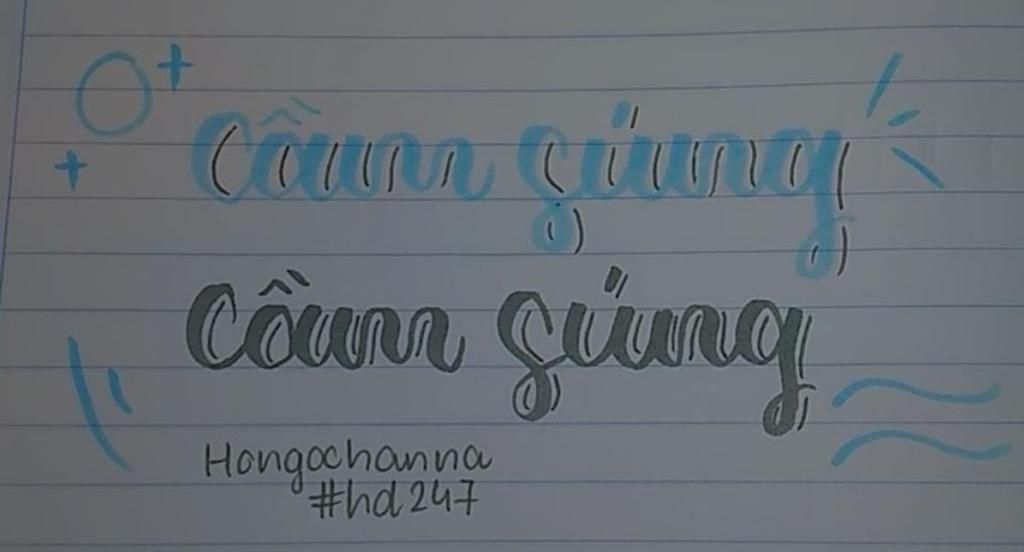 Cầm súng
Cầm súng
Hongochanna
#hd247